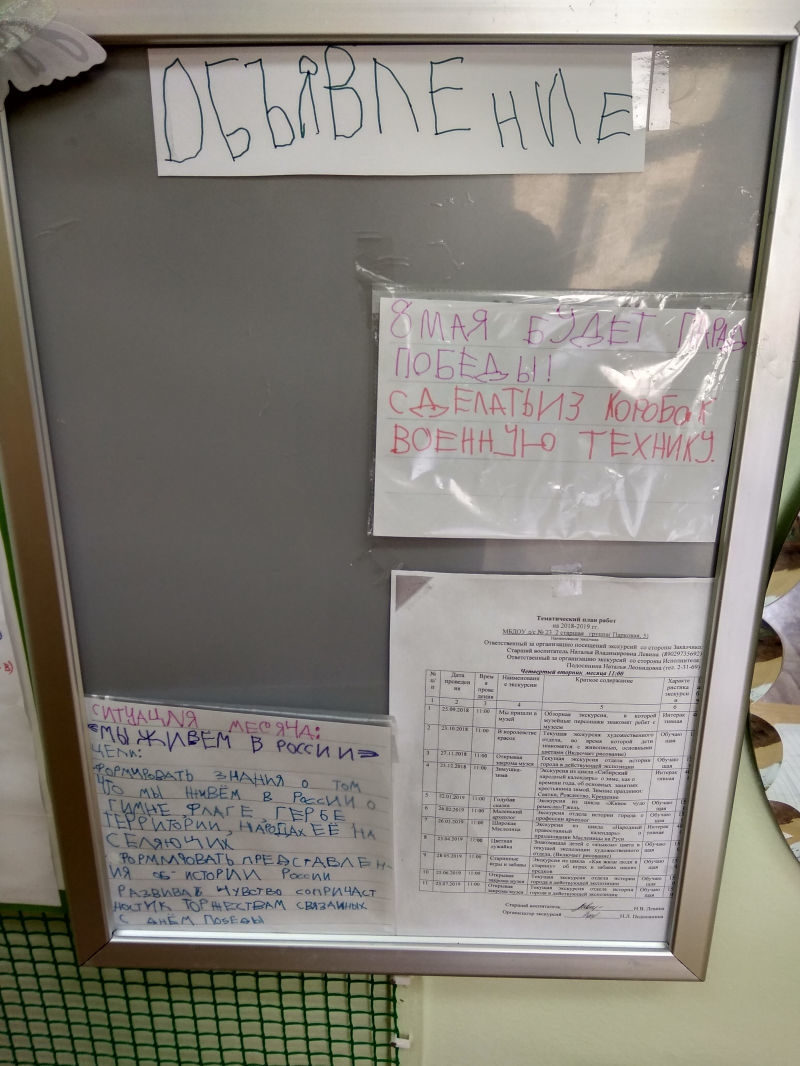 ОБЪЯВЛЕНИЕ
8 МАЯ БУДЕТ ПАРАД
ПОБЕДЫ!
СДЕЛАТЬ ИЗ КОРОБОК
ВОЕННУЮ ТЕХНИКУ.
СИТУАЦИЯ МЕСЯЦА:
«МЫ ЖИВЕМ В РОССИИ»
ЦЕЛИ:
ФОРМИРОВАТЬ ЗНАНИЯ О ТОМ
ЧТО МЫ ЖИВЁМ В РОССИИ О
ГИМНЕ ФЛАГЕ, ГЕРБЕ
ТЕРРИТОРИИ, НАРОДАХ ЕЁ НА
СЕЛЯЮЩИХ
ФОРМИРОВАТЬ ПРЕДСТАВЛЕН-
НИЯ ОБ ИСТОРИИ РОССИИ
РАЗВИВАТЬ ЧУВСТВО СОПРИЧАСТ
НОСТИ К ТОРЖЕСТВАМ СВЯЗАННЫХ
С ДНЁМ ПОБЕДЫ
Тематический план работ
на 2018-2019 гг.
МБДОУ д/с № 23 2 старшая группа( Парковая, 5)
Наименование заказчика
Ответственный за организацию посещений экскурсий со стороны Заказчика:
Старший воспитатель Наталья Владимировна Левина (89029735692)
Ответственный за организацию экскурсий со стороны Исполнителя:
Подосенина Наталья Леонидовна (тел. 2-31-69)
Четвертый вторник месяца 11:00
№ п/п Дата проведения Время проведения Наименование экскурсии Краткое содержание Характеристика экскурсии
1 2 3 4 5 6
1 25.09.2018 11:00 Мы пришли в музей Обзорная экскурсия, в которой музейные персонажи знакомят ребят с музеем Интерактивная
2 23.10.2018 11:00 В королевстве красок Текущая экскурсия художественного отдела, во время которой дети знакомятся с живописью, основными цветами (Включает рисование) Обучающая
3 27.11.2018 11:00 Открывая закрома музея Текущая экскурсия отдела истории города в действующей экспозиции Обучающая
4 25.12.2018 11:00 Зимушка-зима Экскурсия из цикла «Сибирский народный календарь» о зиме, как о времени года, об основных занятиях крестьянина зимой. Зимние праздники: Святки, Рождество, Крещение Интерактивная
5 22.01.2019 11:00 Голубая сказка Экскурсия из цикла «Живое чудо ремесла»/Гжель Обучающая
6 26.02.2019 11:00 Маленький археолог Экскурсия отдела истории города о профессии археолог Обучающая
7 26.03.2019 11:00 Широкая Масленица Экскурсия из цикла «Народный православный календарь» о праздновании Масленицы на Руси Интерактивная
8 23.04.2019 11:00 Цветная лужайка Знакомящая детей с «языком» цвета в текущей экспозиции художественного отдела. (Включает рисование) Обучающая
9 28.05.2019 11:00 Старинные игры и забавы Экскурсия из цикла «Как жили люди в старину» об играх и забавах наших предков Обучающая
10 25.06.2019 11:00 Открывая закрома музея Текущая экскурсия отдела истории города в действующей экспозиции Обучающая
11 23.07.2019 11:00 Открывая закрома музея Текущая экскурсия отдела истории города в действующей экспозиции Обучающая
Старший воспитатель Н.В. Левина
Организатор экскурсий Н.Л. Подосенина